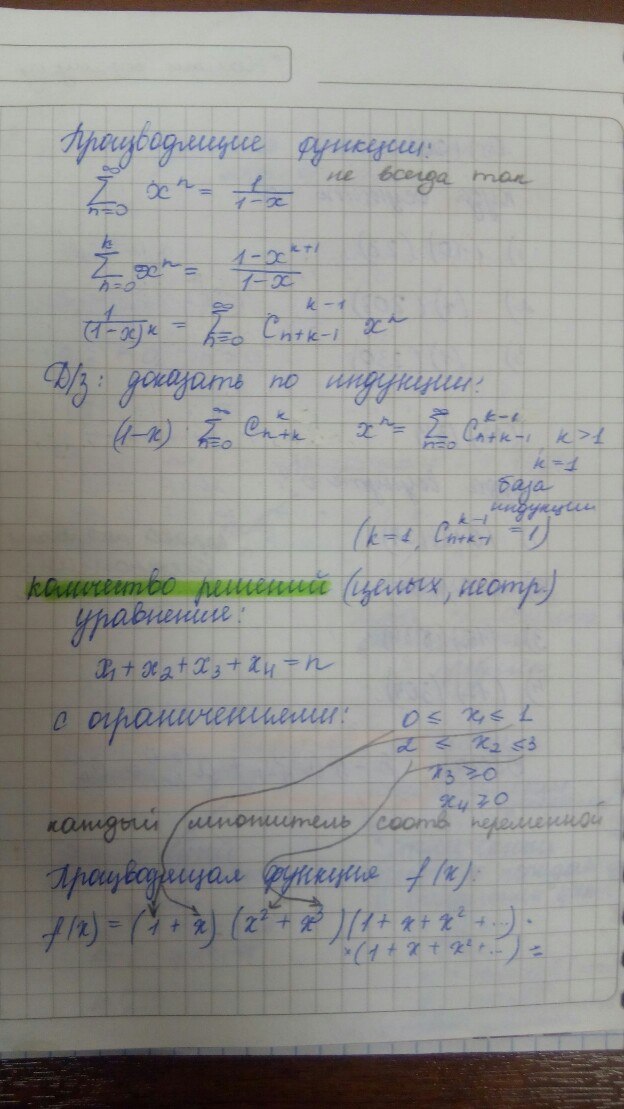 Производящие функции:
∞ ∑ n=0 xⁿ = 1/(1-x) не всегда так
k ∑ n=0 xⁿ = (1-x^(k+1))/(1-x)
1/(1-x)^k = ∞ ∑ n=0 C_(n+k-1)^(k-1) xⁿ
Д/з: доказать по индукции:
(1-x) ∞ ∑ n=0 C_(n+k)^k xⁿ = ∞ ∑ n=0 C_(n+k-1)^(k-1) k>1
k=1
база
индукции
(k=1, C_(n+k-1)^(k-1) = 1)
количество решений (целых, неотр.)
уравнение:
x₁ + x₂ + x₃ + x₄ = n
с ограничениями: 0 ≤ x₁ ≤ 1
2 ≤ x₂ ≤ 3
x₃ ≥ 0
x₄ ≥ 0
каждый множитель соотв переменной
Производящая функция f(x):
f(x) = (1 + x) (x² + x³) (1 + x + x² + ...) ·
·(1 + x + x² + ...) =